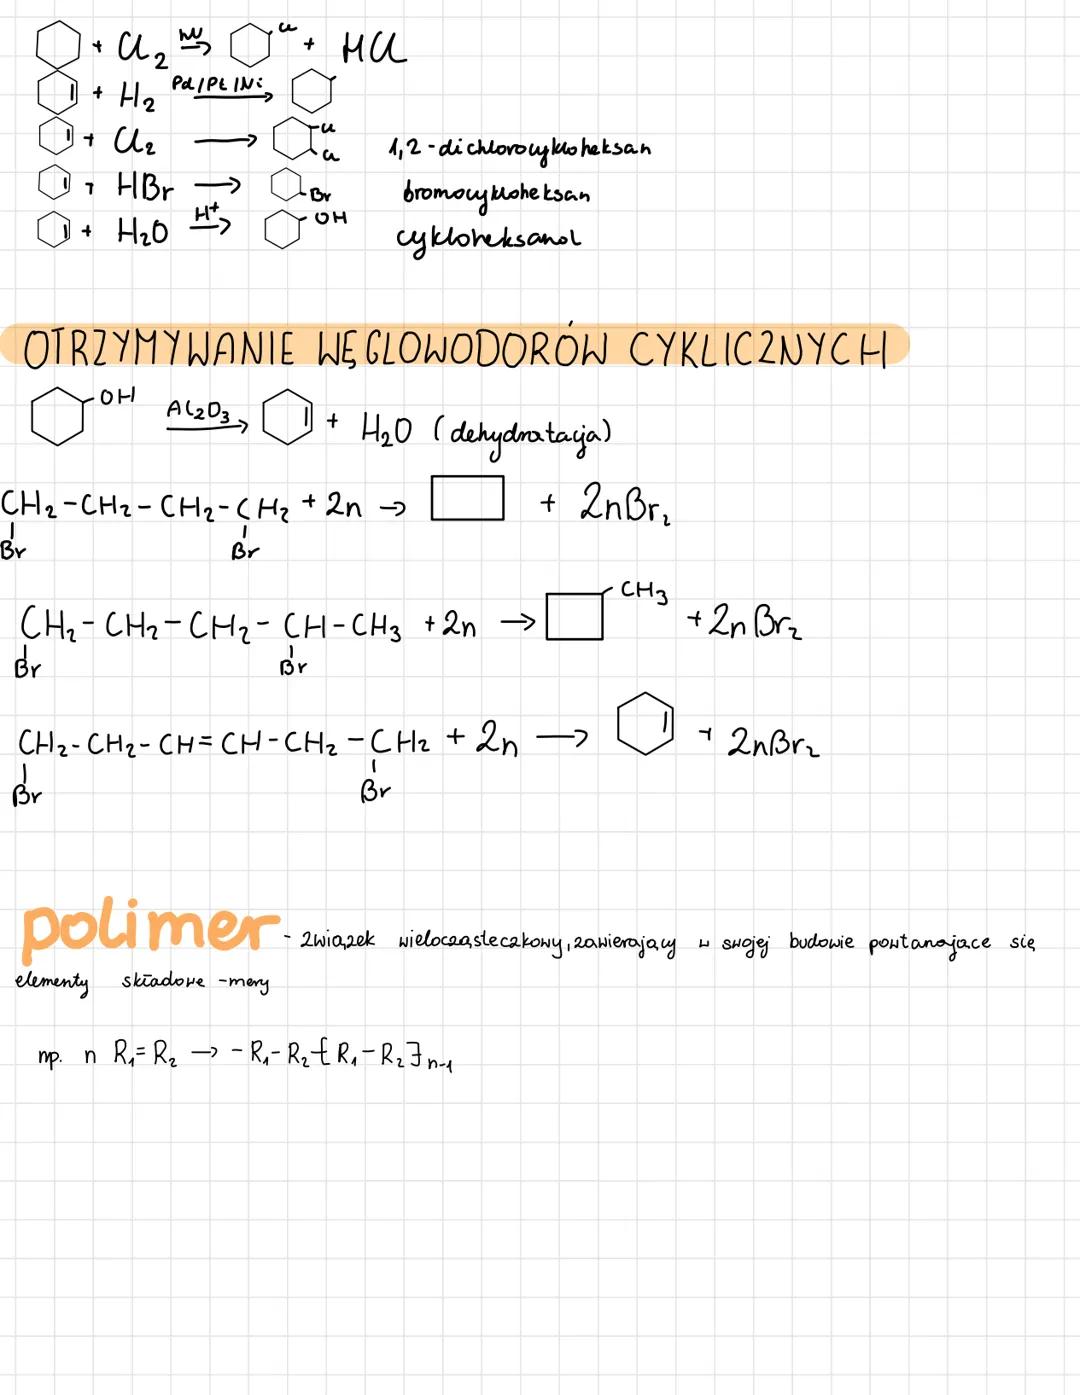 + Cl₂ hν → Cl + HCl
+ H₂ Pd/Pt/Ni →
+ Cl₂ → Cl Cl 1,2-dichlorocykloheksan
+ HBr → Br bromocykloheksan
+ H₂O H⁺ → OH cykloheksanol
OTRZYMYWANIE WĘGLOWODORÓW CYKLICZNYCH
OH Al₂O₃ → + H₂O (dehydratacja)
CH₂-CH₂-CH₂-CH₂ + Zn → + ZnBr₂
Br Br
CH₂-CH₂-CH₂-CH-CH₃ + Zn → CH₃ + ZnBr₂
Br Br
CH₂-CH₂-CH=CH-CH₂-CH₂ + Zn → + ZnBr₂
Br Br
polimer - związek wielocząsteczkowy, zawierający w swojej budowie powtarzające się
elementy składowe - mery
np. n R₁=R₂ → -R₁-R₂-[R₁-R₂]ₙ₋₁